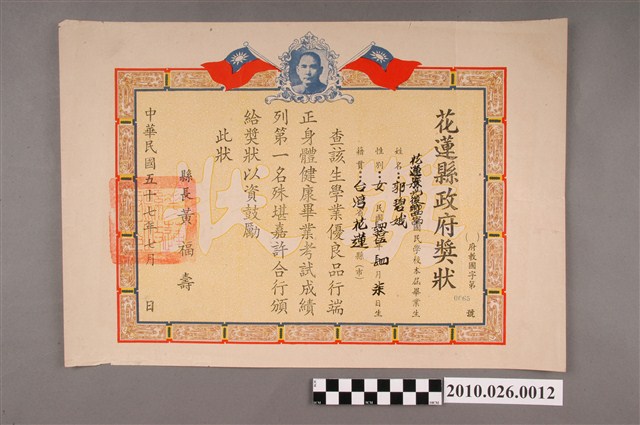 花蓮縣政府獎狀
（　）府教國字第　號
民學校本屆畢業生
姓名：郭碧娥
性別：女　民國　年　月　日生
籍貫：台灣省花蓮縣（市）
查該生學業優良品行端
正身體健康畢業考試成績
列第一名殊堪嘉許合行頒
給獎狀以資鼓勵
此狀
縣長黃福壽
中華民國五十七年七月　日
獎狀
2010.026.0012